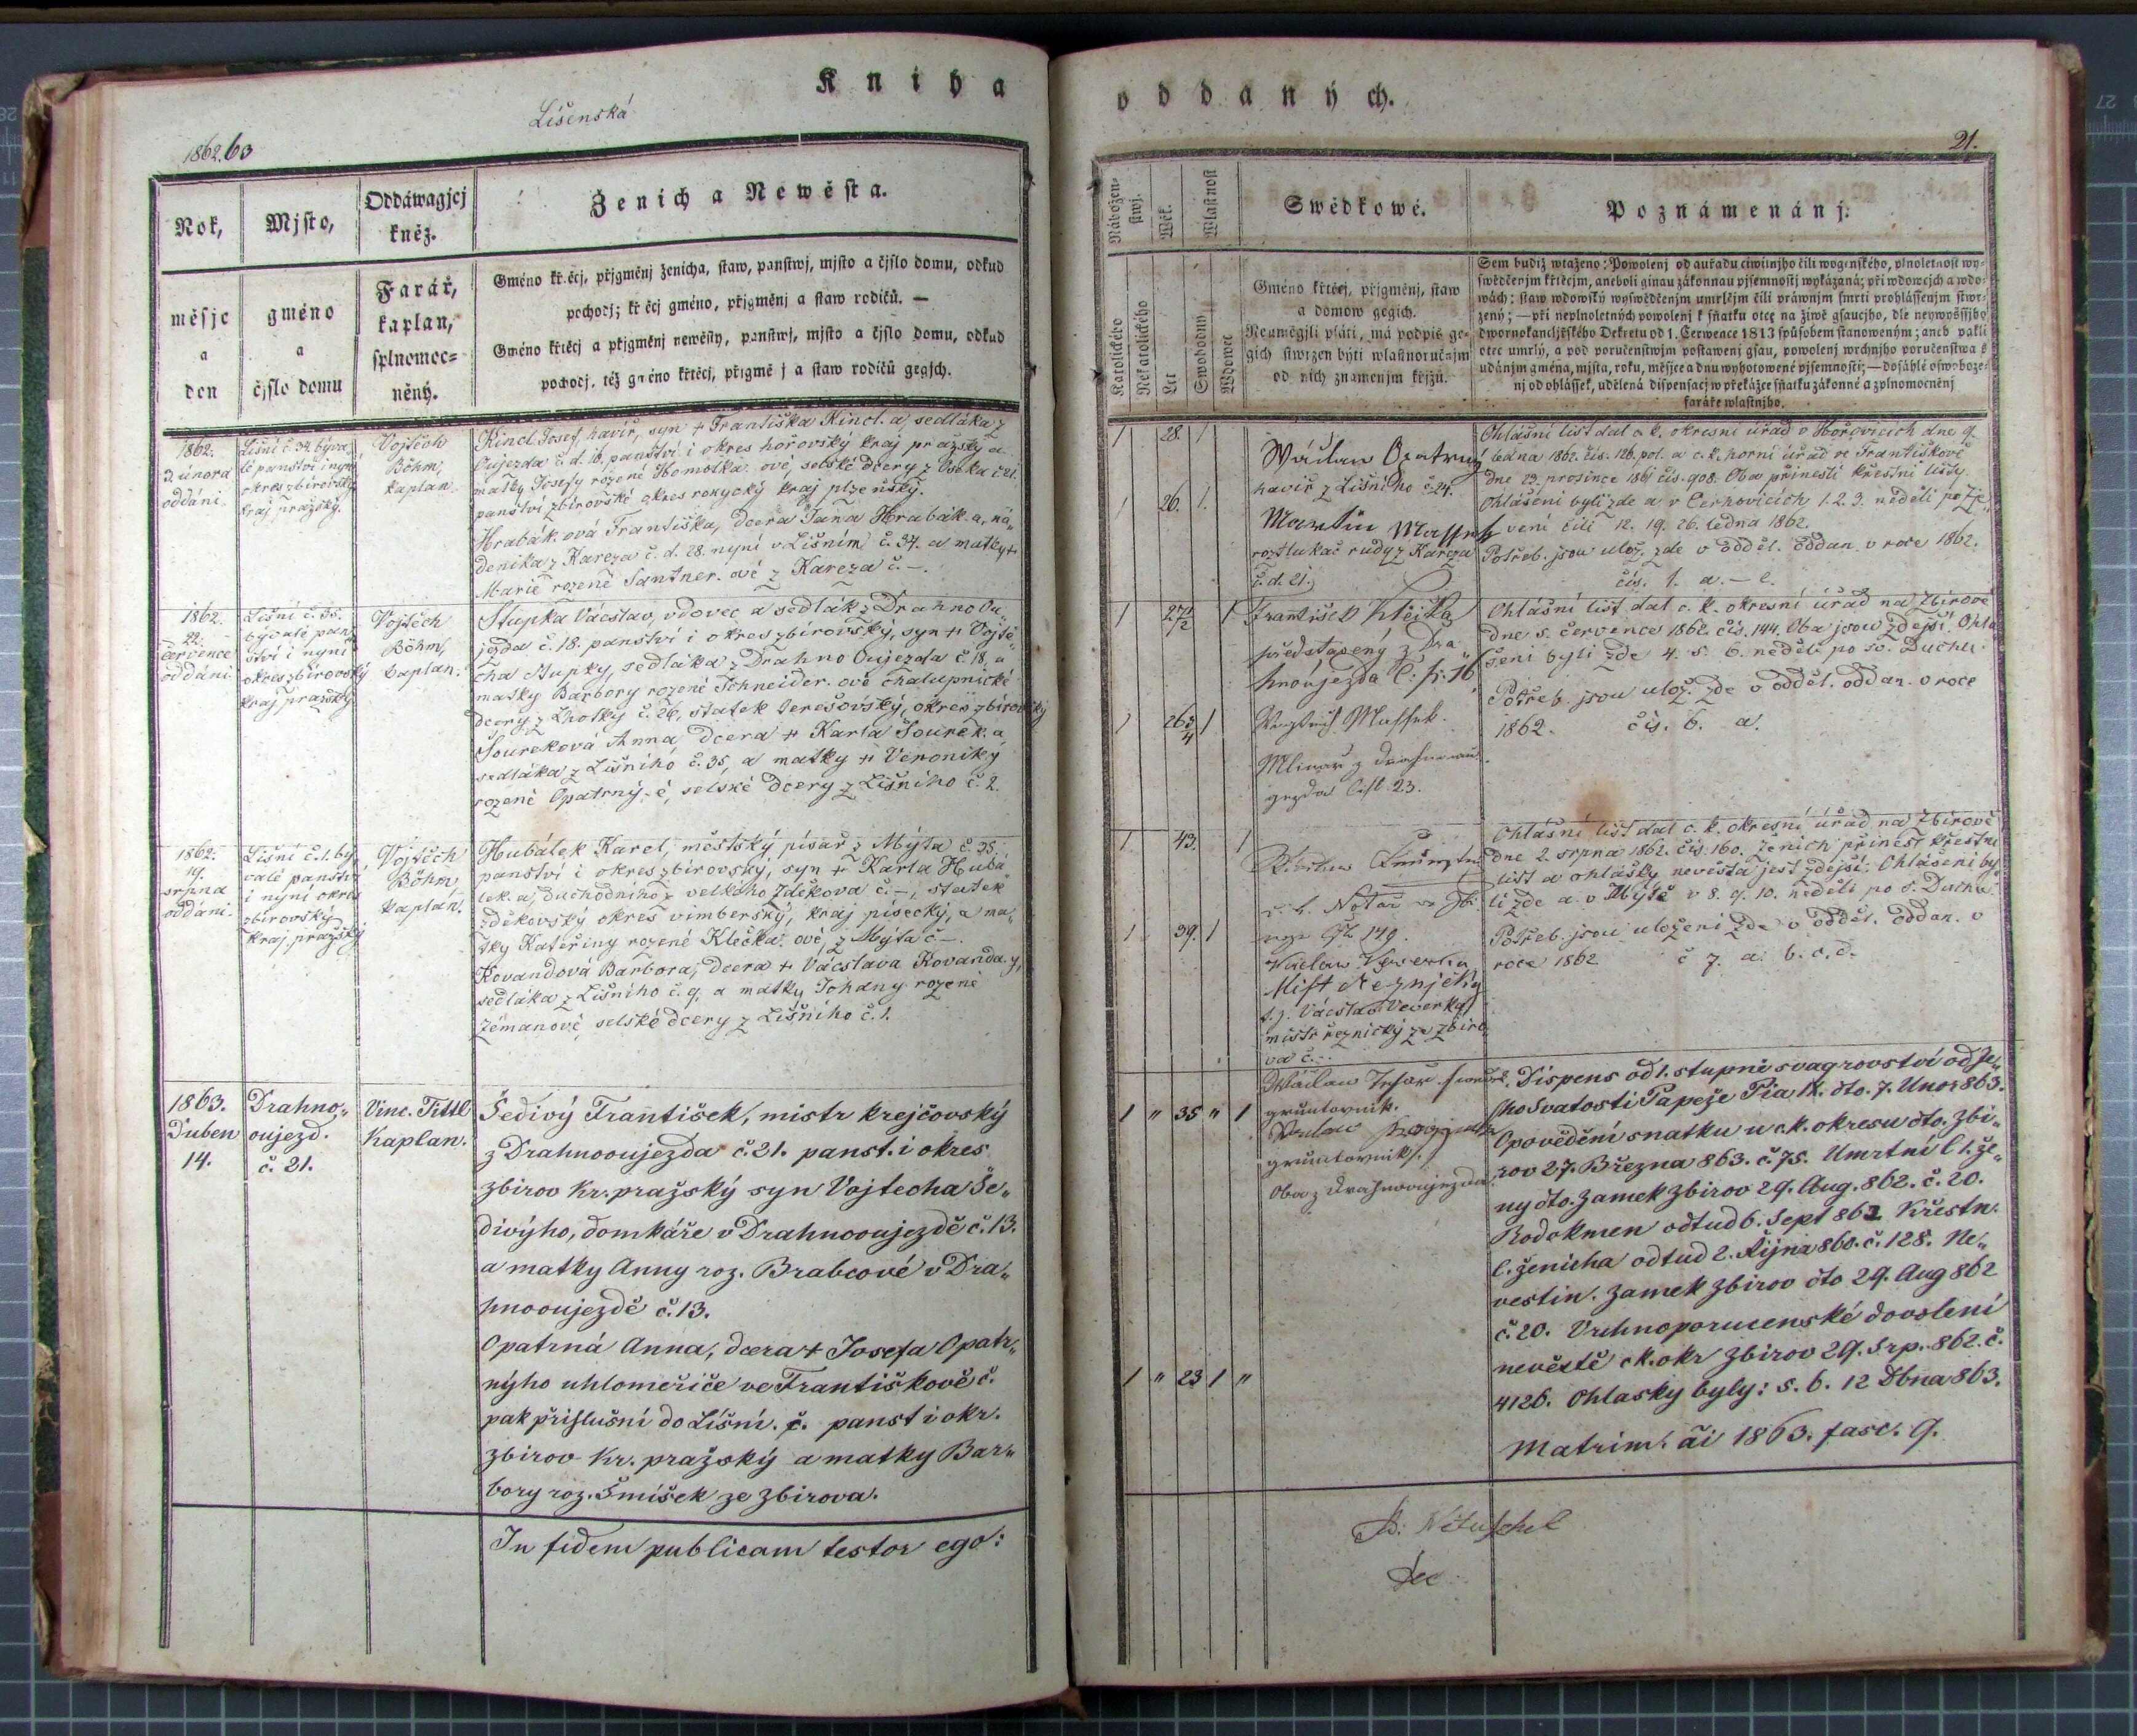 Kniha
Lišenská
1862.63
Rok,
měsjc
a
den
Mjsto,
gméno
a
čjslo domu
Oddáwagjcj
kněz.
Farář,
kaplan,
splnomoc=
něný.
Ženich a Newěsta.
Gméno křtěcj, přjgměnj ženicha, staw, panstwj, mjsto a čjslo domu, odkud
pocházj; křtěcj gméno, přjgměnj a staw rodičů. —
Gméno křtěcj a přjgměnj newěsty, panstwj, mjsto a čjslo domu, odkud
pocházj, též gméno křtěcj, přjgměnj a staw rodičů gegjch.
1862.
3. února
oddáni.
Lišní č. 34. býva„
lé panství i nyní
okres zbirovský
kraj pražský.
Vojtěch
Böhm,
kaplan.
Kincl Josef, havíř, syn + Františka Kincl. a, sedláka z
Oujezda č. d. 10, panství i okres hořovský kraj pražský a
matky Josefy rozené Homolka. ové, selské dcery z Oseka č.
panství zbirovské okres rokycký kraj plzeňský.
Hrabák. ová Františka, dcera Jana Hrabák. a, ná„
deníka z Kareza č. d. 28. nyní v Lišním č. 34. a matky +
Marie rozené Santner. ové z Kareza č. –.
1862.
22.
července
oddáni.
Lišní č. 35.
bývalé pan„
ství i nyní
okres zbirovský
kraj pražský
Vojtěch
Böhm,
kaplan.
Stupka Vácslav, vdovec a sedlák z Drahno Ou„
jezda č. 18. panství i okres zbirovský, syn + Vojtě„
cha Stupky, sedláka z Drahno Oujezda č. 18, a
matky Barbory rozené Schneider. ové chalupnické
dcery z Lhotky č. 26, statek Terešovský, okres zbirovský
Soureková Anna dcera + Karla Sourek. a
sedláka z Lišního č. 35, a matky + Veroniky
rozené Opatrný. é, selské dcery z Lišního č. 2.
1862.
19.
srpna
oddáni.
Lišní č. 1. bý„
valé panství
i nyní okres
zbirovský
kraj pražský
Vojtěch
Böhm,
kaplan.
Hubálek Karel, městský písař z Mýta č. 35.
panství i okres zbirovský, syn + Karla Hubá„
lek. a, důchodního z velkého Zdíkova č. –, statek
zdíkovský okres vimberský, kraj písecký, a ma„
tky Kateřiny rozené Klečka. ové, z Mýta č –.
Kovandová Barbora, dcera + Vácslava Kovanda. y,
sedláka z Lišního č. 9, a matky Johany rozené
Zemanové, selské dcery z Lišního č. 1.
1863.
Duben
14.
Drahno„
oujezd.
č. 21.
Vinc. Tittl
Kaplan.
Šedivý František, mistr krejčovský
z Drahnooujezda č. 21. panst. i okres
zbirov kr. pražský syn Vojtecha Še„
divýho, domkáře v Drahnooujezdě č. 13.
a matky Anny roz. Brabcové v Dra„
hnooujezdě č. 13.
Opatrná Anna, dcera + Josefa Opatr„
nýho uhloměřiče ve Františkově č.
pak přislušní do Lišní. č. panst i okr.
zbirov kr. pražský a matky Bar„
bory roz. Šmíšek ze Zbirova.
In fidem publicam testor ego:
oddaných.
21.
Nábožen-
stwj.
Wěk.
Wlastnost
Swědkowé.
Poznámenánj.
Katolického
Nekatolického
Let
Swobodný
Wdowec
Gméno křtěcj, přjgměnj, staw
a domow gegich.
Neumějjli psáti, má podpis ge-
gich stwrzen býti wlastnoručnjm
od nich znamenjm křjžů.
Sem budiž wtaženo: Powolenj od auřadu ciwilnjho čili wogenského, plnoletnost wy-
swědčenjm křtěcjm, aneboli ginau zákonnau pjsemnostj wykázaná; při wdowcjch a wdo-
wách: staw wdowský wyswědčenjm umrlčjm čili práwnjm smrti prohlášsenjm stwr-
zený; — při neplnoletných powolenj k sňatku otce na žiwě gsaucjho, dle neywyšsjho
dwornokancljřského Dekretu od 1. Čerwence 1813 spůsobem stanoweným; aneb pakli
otec umrlý, a pod poručenstwjm postawenj gsau, powolenj wrchnjho poručenstwa s
udánjm gména, mjsta, roku, měsjce a dnu wyhotowené pjsemnosti; — dosáhlé oswoboze-
nj od ohlášsek, udělená dispensacj w překážce sňatku zákonné a zplnomocněnj
faráře wlastnjho.
1 28. 1
1 26. 1.
Wáclaw Opatrny
havíř z Lišního č. 24.
Martin Masseth
roztlukač rudy z Kareza
č. d. 21.
Ohlášní list dal c. k. okresní úřad v Hořovicích dne 9.
ledna 1862. čís. 126. pol. a c. k. horní úřad ve Františkově
dne 29. prosince 1861 čís. 908. Oba přinesli křestní listy.
Ohlášeni byli zde a v Cerhovicích 1. 2. 3. neděli po Zje„
vení čili 12. 19. 26. ledna 1862.
Potřeb. jsou ulož. zde v odděl. oddan. v roce 1862.
čís. 1. a. – e.
1 27 1/2 1
1 26 3/4 1
František Klečka
představený z Dra
hnoújezda Č. p. 16
Mlinař z
gezda Cisl. 23.
Ohlášní list dal c. k. okresní úřad na Zbirově
dne 5. července 1862. čís. 144. Oba jsou zdejší. Ohlá
šeni byli zde 4. 5. 6. neděli po sv. Duchu.
Potřeb. jsou ulož. zde v odděl. oddan. v roce
1862. čís. 6. a.
1 43. 1
1 39. 1
c. k. Notar
149.
Mist Řeznický
t. j. Vácslav Veverka,
mistr řeznický ze Zbiro
va č. –.
Ohlášní list dal c. k. okresní úřad na Zbirově
dne 2. srpna 1862. čís. 160. Ženich přinesl křestní
list a ohlášky nevěsta jest zdejší. Ohlášeni by„
li zde a v Mýtě v 8. 9. 10. neděli po s. Duchu.
Potřeb. jsou uloženi zde v odděl. oddan. v
roce 1862 č 7. a. b. c. d.
1 „ 35 „ 1
1 „ 23 1 „
gruntovnik.
gruntovnik.
Oba z Drahnooujezda
Dispens od 1. stupně svagrovství od Je„
ho Svatosti Papeže Pia IX. dto. 7. Unor 863.
Opovědění snatku u c. k. okresu dto. Zbi„
rov 27. Března 863. č. 75. Umrtní l 1. že„
ny dto. zamek Zbirov 29. Aug. 862. č. 20.
Rodokmen odtud 6. Sept 862 Křestn.
l. ženicha odtud 2. Října 860. č. 128. Ne„
vestin. Zamek Zbirov dto 29. Aug 862
č. 20. Vrchnoporucenské dovolení
nevěstě c k. okr Zbirov 29. Srp. 862. č.
4126. Ohlasky byly: 5. 6. 12 Dbna 863.
Matrim. ai 1863. fasc. 9.